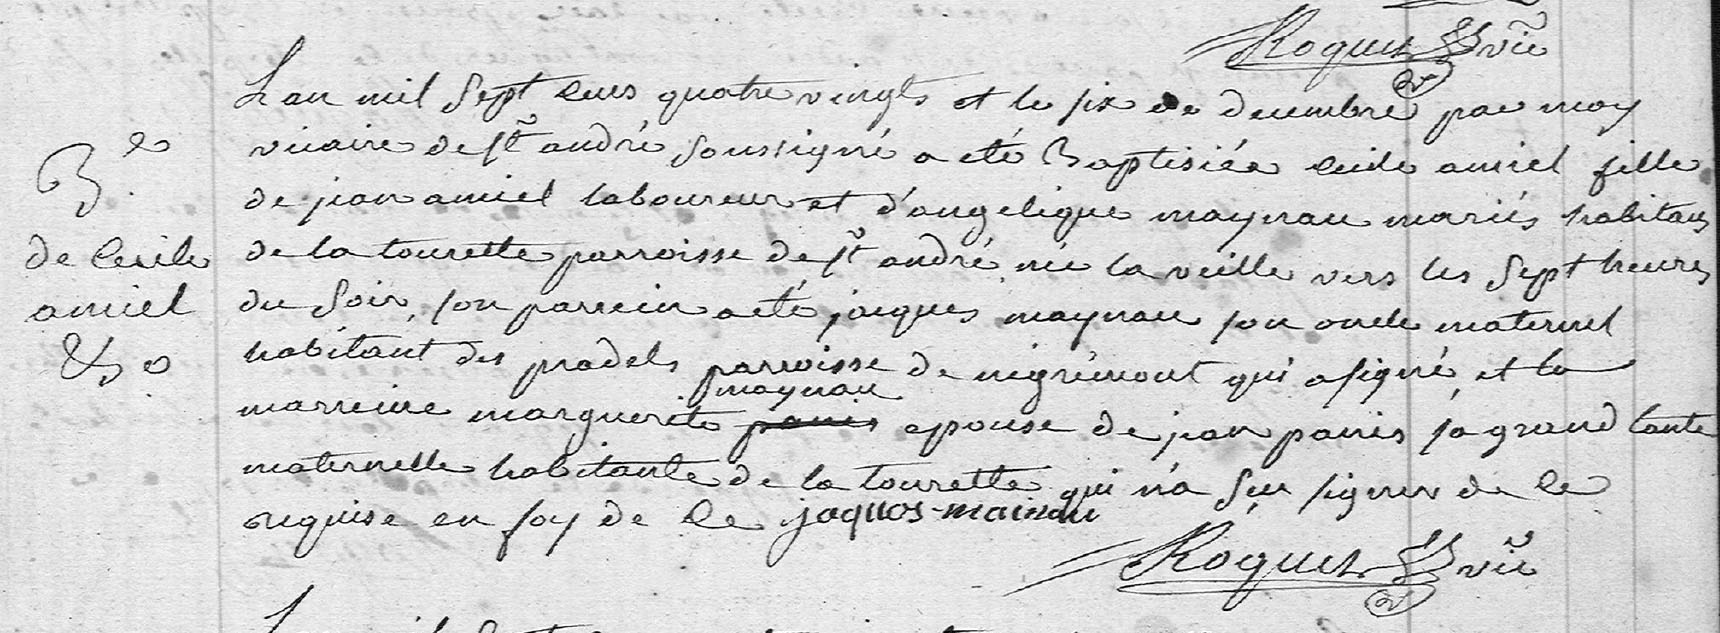 Roques vic
L'an mil sept cens quatre vingts et le six de decembre par moy
vicaire de st andré soussigné a eté Baptisiée cecile amiel fille
de jean amiel laboureur et d'angelique maynau mariés habitans
de la tourette parroisse de st andré née la veille vers les sept heures
du soir, son parrein a eté jacques maynau son oncle maternel
habitant des pradels parroisse de négrémont qui a signé, et la
maynau
marreine marguerite paris epouse de jean paris sa grand tante
maternelle habitante de la tourette qui n'a sçu signer de ce
requise en foy de ce jaquos mainau
Roques vic
B.e
de Cecile
amiel